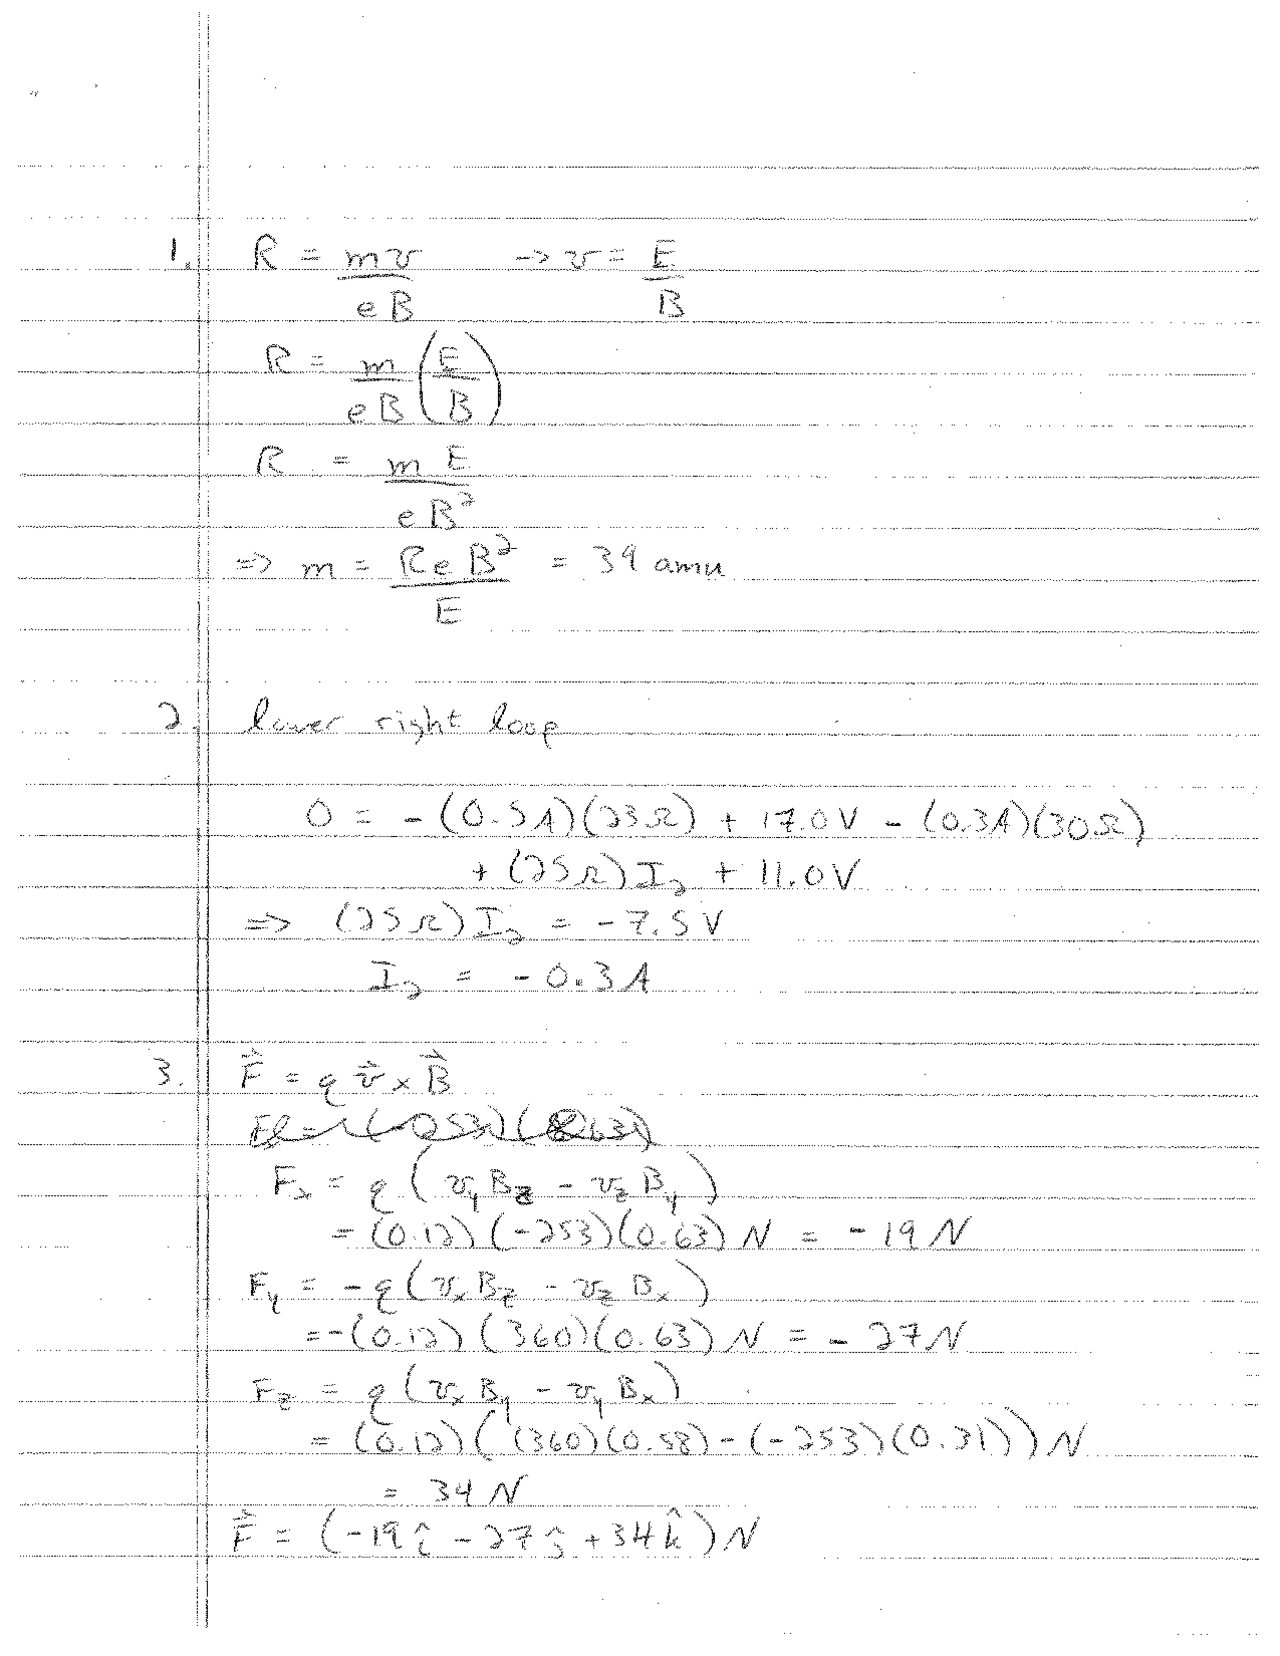 1. R = mv/eB → v = E/B
R = m/eB (E/B)
R = mE/eB²
⇒ m = ReB²/E = 39 amu
2. lower right loop
0 = -(0.5A)(23Ω) + 17.0V - (0.3A)(30Ω)
+ (25Ω)I₂ + 11.0V
⇒ (25Ω)I₂ = -7.5V
I₂ = -0.3A
3. F⃗ = q v⃗ × B⃗
Fₓ = q(v_y B_z - v_z B_y)
= (0.12)(-253)(0.63)N = -19N
F_y = -q(vₓ B_z - v_z Bₓ)
= -(0.12)(360)(0.63)N = -27N
F_z = q(vₓ B_y - v_y Bₓ)
= (0.12)((360)(0.58) - (-253)(0.31))N
= 34N
F⃗ = (-19î - 27ĵ + 34k̂)N